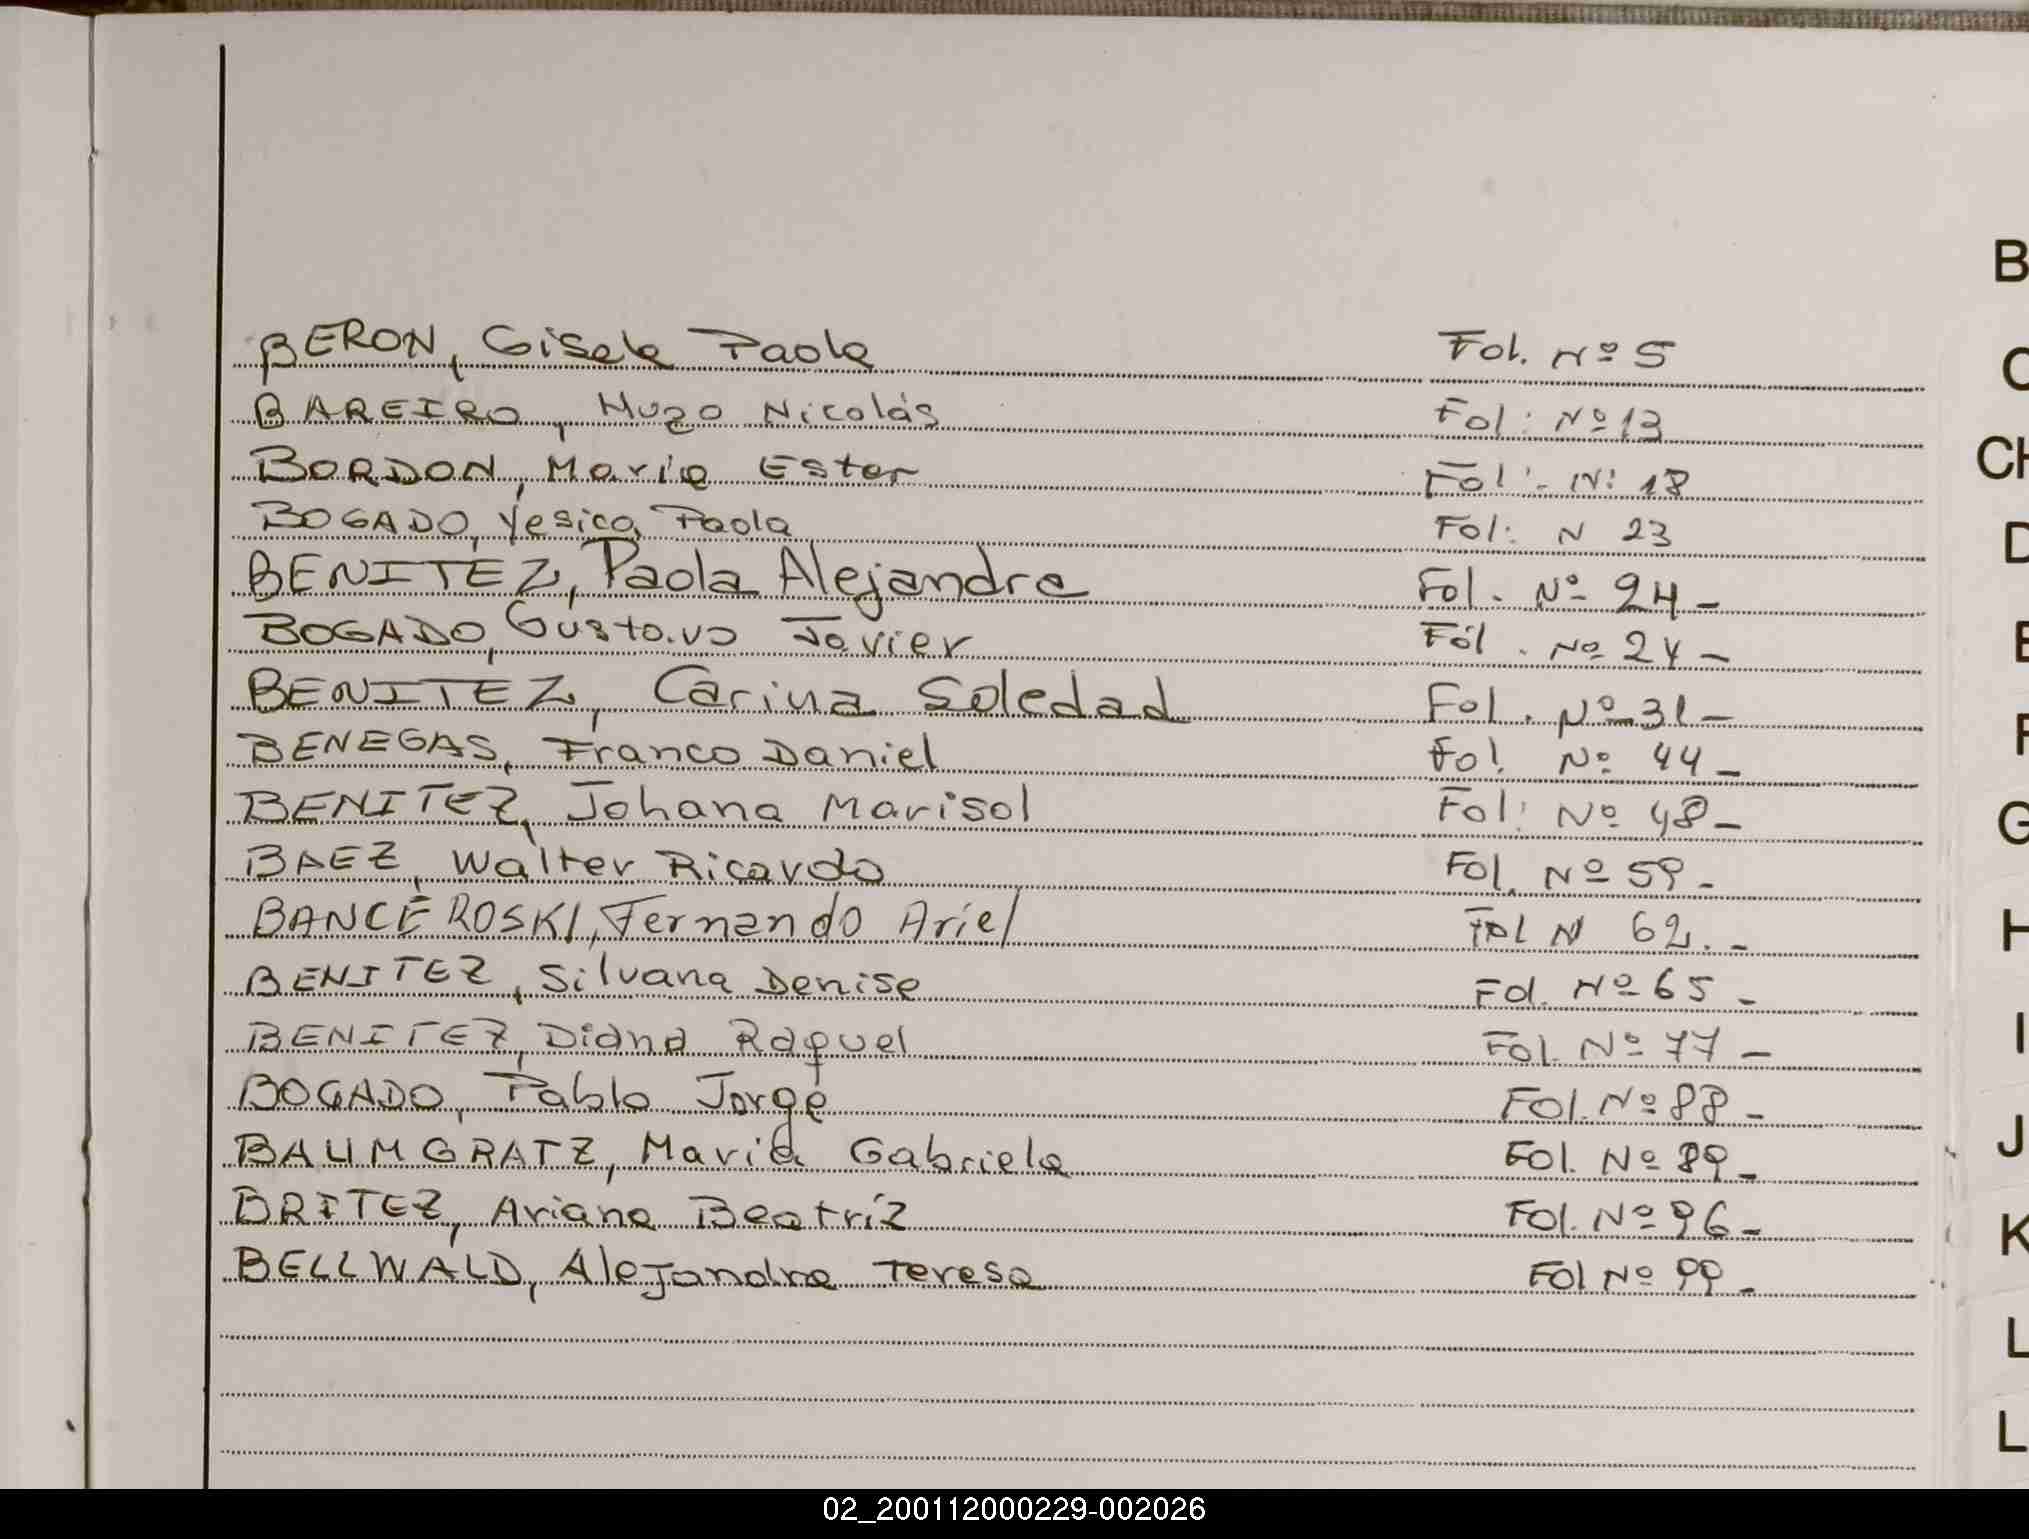 BERON, Gisela Paola Fol. Nº 5
BAREIRO, Hugo Nicolás Fol: Nº 13
BORDON, María Ester Fol:- Nº 18
BOGADO, Yesica Paola Fol: N 23
BENITEZ, Paola Alejandra Fol. Nº 24-
BOGADO, Gustavo Javier Fol. Nº 24-
BENITEZ, Carina Soledad Fol. Nº 31-
BENEGAS, Franco Daniel Fol. Nº 44-
BENITEZ, Johana Marisol Fol: Nº 48-
BAEZ, Walter Ricardo Fol. Nº 59-
BANCEROSKI, Fernando Ariel Fol N 62.-
BENITEZ, Silvana Denise Fol. Nº 65-
BENITEZ, Diana Raquel Fol. Nº 77-
BOGADO, Pablo Jorge Fol. Nº 88-
BAUMGRATZ, María Gabriela Fol. Nº 89-
BRITEZ, Ariana Beatríz Fol. Nº 96-
BELLWALD, Alejandra Teresa Fol Nº 99-
B
C
CH
D
E
F
G
H
I
J
K
L
L
02_200112000229-002026